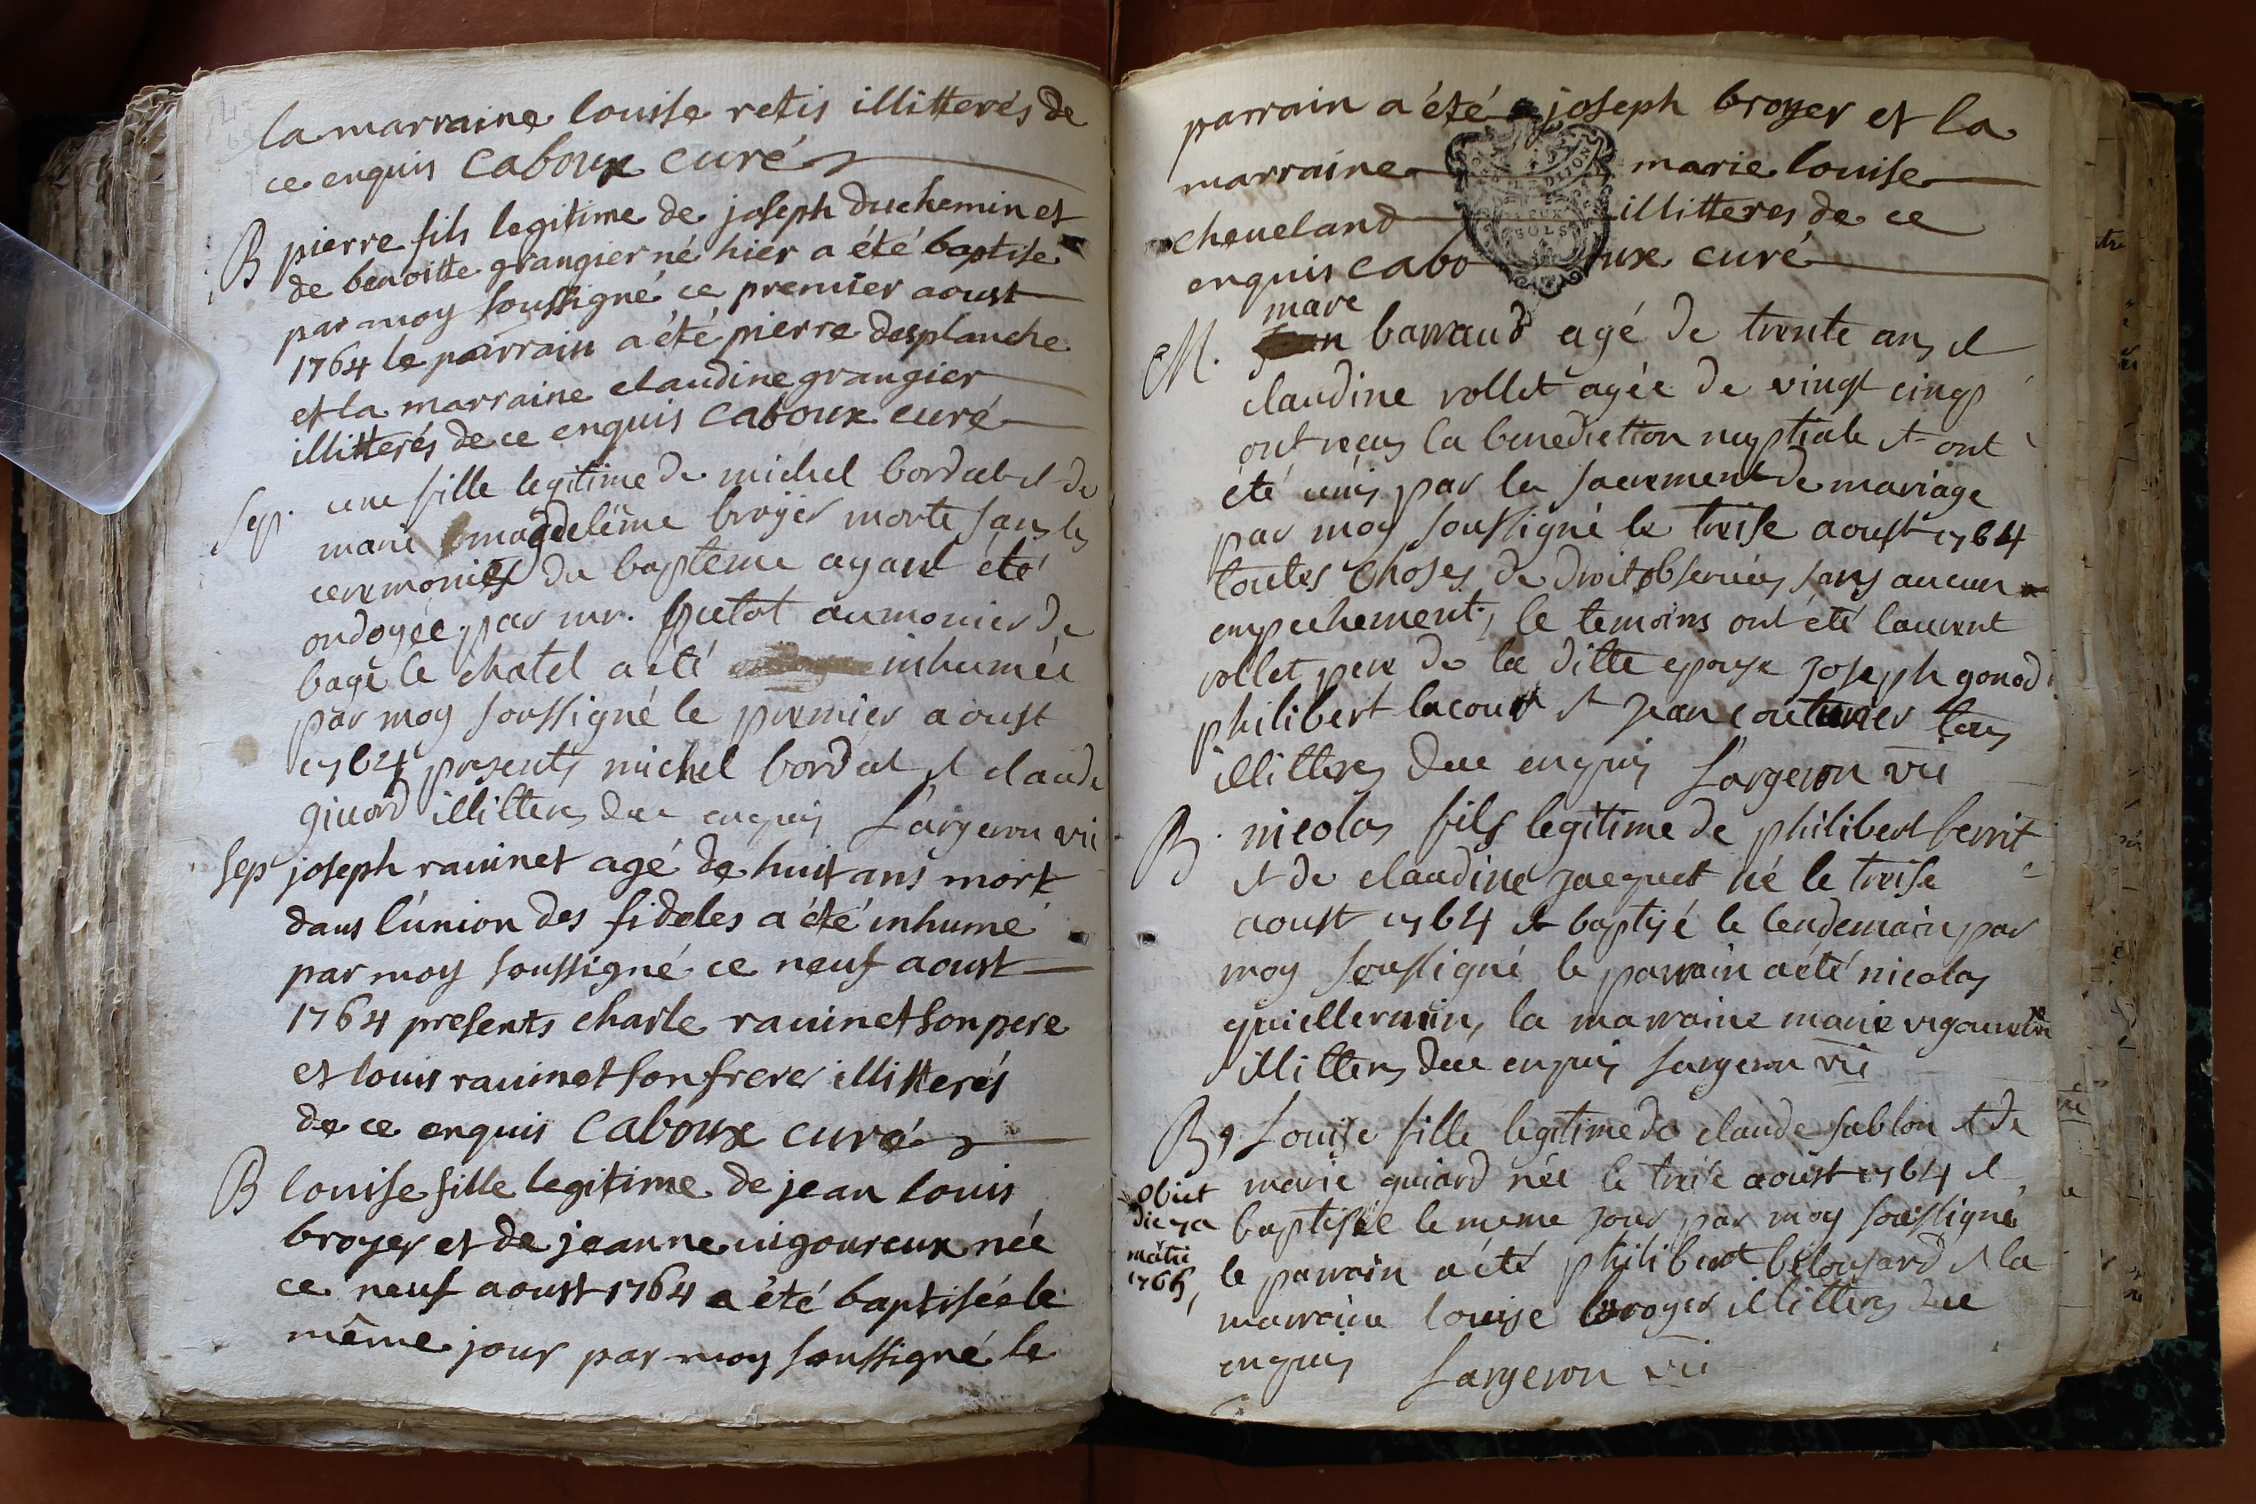 la marraine louise retis illitterés de
ce enquis Caboux curé
B pierre fils legitime de joseph duchemin et
de benoitte grangier né hier a été baptise
par moy soussigné ce premier aoust
1764 le parrain a été pierre desplanche
et la marraine claudine grangier
illitterés de ce enquis Caboux curé
Sep. une fille legitime de michel bordat et de
marie magdeleine broÿer morte sans les
ceremonies du bapteme ayant été
ondoyée par mr. putot aumonier de
bagé le chatel a été inhumée
par moy soussigné le premier aoust
1764 presents michel bordat et claude
givord illitteres duc enquis Sargeron vic
Sep joseph rauinet agé de huit ans mort
dans l'union des fideles a été inhumé
par moy soussigné ce neuf aoust
1764 presents charle rauinet son pere
et louis rauinet son frere illitterés
de ce enquis Caboux curé
B louise fille legitime de jean louis
broyer et de jeanne uigoureux née
ce neuf aoust 1764 a été baptisée le
même jour par moy soussigné le
parrain a été joseph broyer et la
marraine marie louise
cheueland illitteres de ce
enquis Caboux curé
marc
M. barraud agé de trente ans et
claudine rollet agée de vingt cinq
ont reçu la benediction nuptiale et ont
été unis par le sacrement de mariage
par moy soussigné le treise aoust 1764
toutes choses de droit observées sans aucun
empechement, le temoins ont été laurent
rollet pere de la ditte epouse joseph gonod
philibert lacour et jean couturier tous
illitteres duc enquis Sargeron vic
B. nicolas fils legitime de philibert ferrit
et de claudine jacquet né le treise
aoust 1764 et baptisé le lendemain par
moy soussigné le parrain a été nicolas
guillermin, la marraine marie
illitteres duc enquis Sargeron vic
B Louise fille legitime de claude sablon et de
marie guiard née le treise aoust 1764 et
baptisée le meme jour par moy soussigné
le parrain a été philibert belousard et la
marraine louise broyer illitteres duc
enquis Sargeron vic
obiit
die 7a
1766